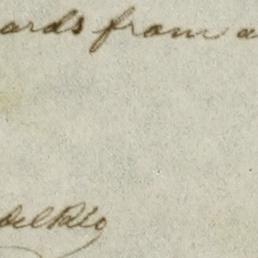 ards from a
del Rio